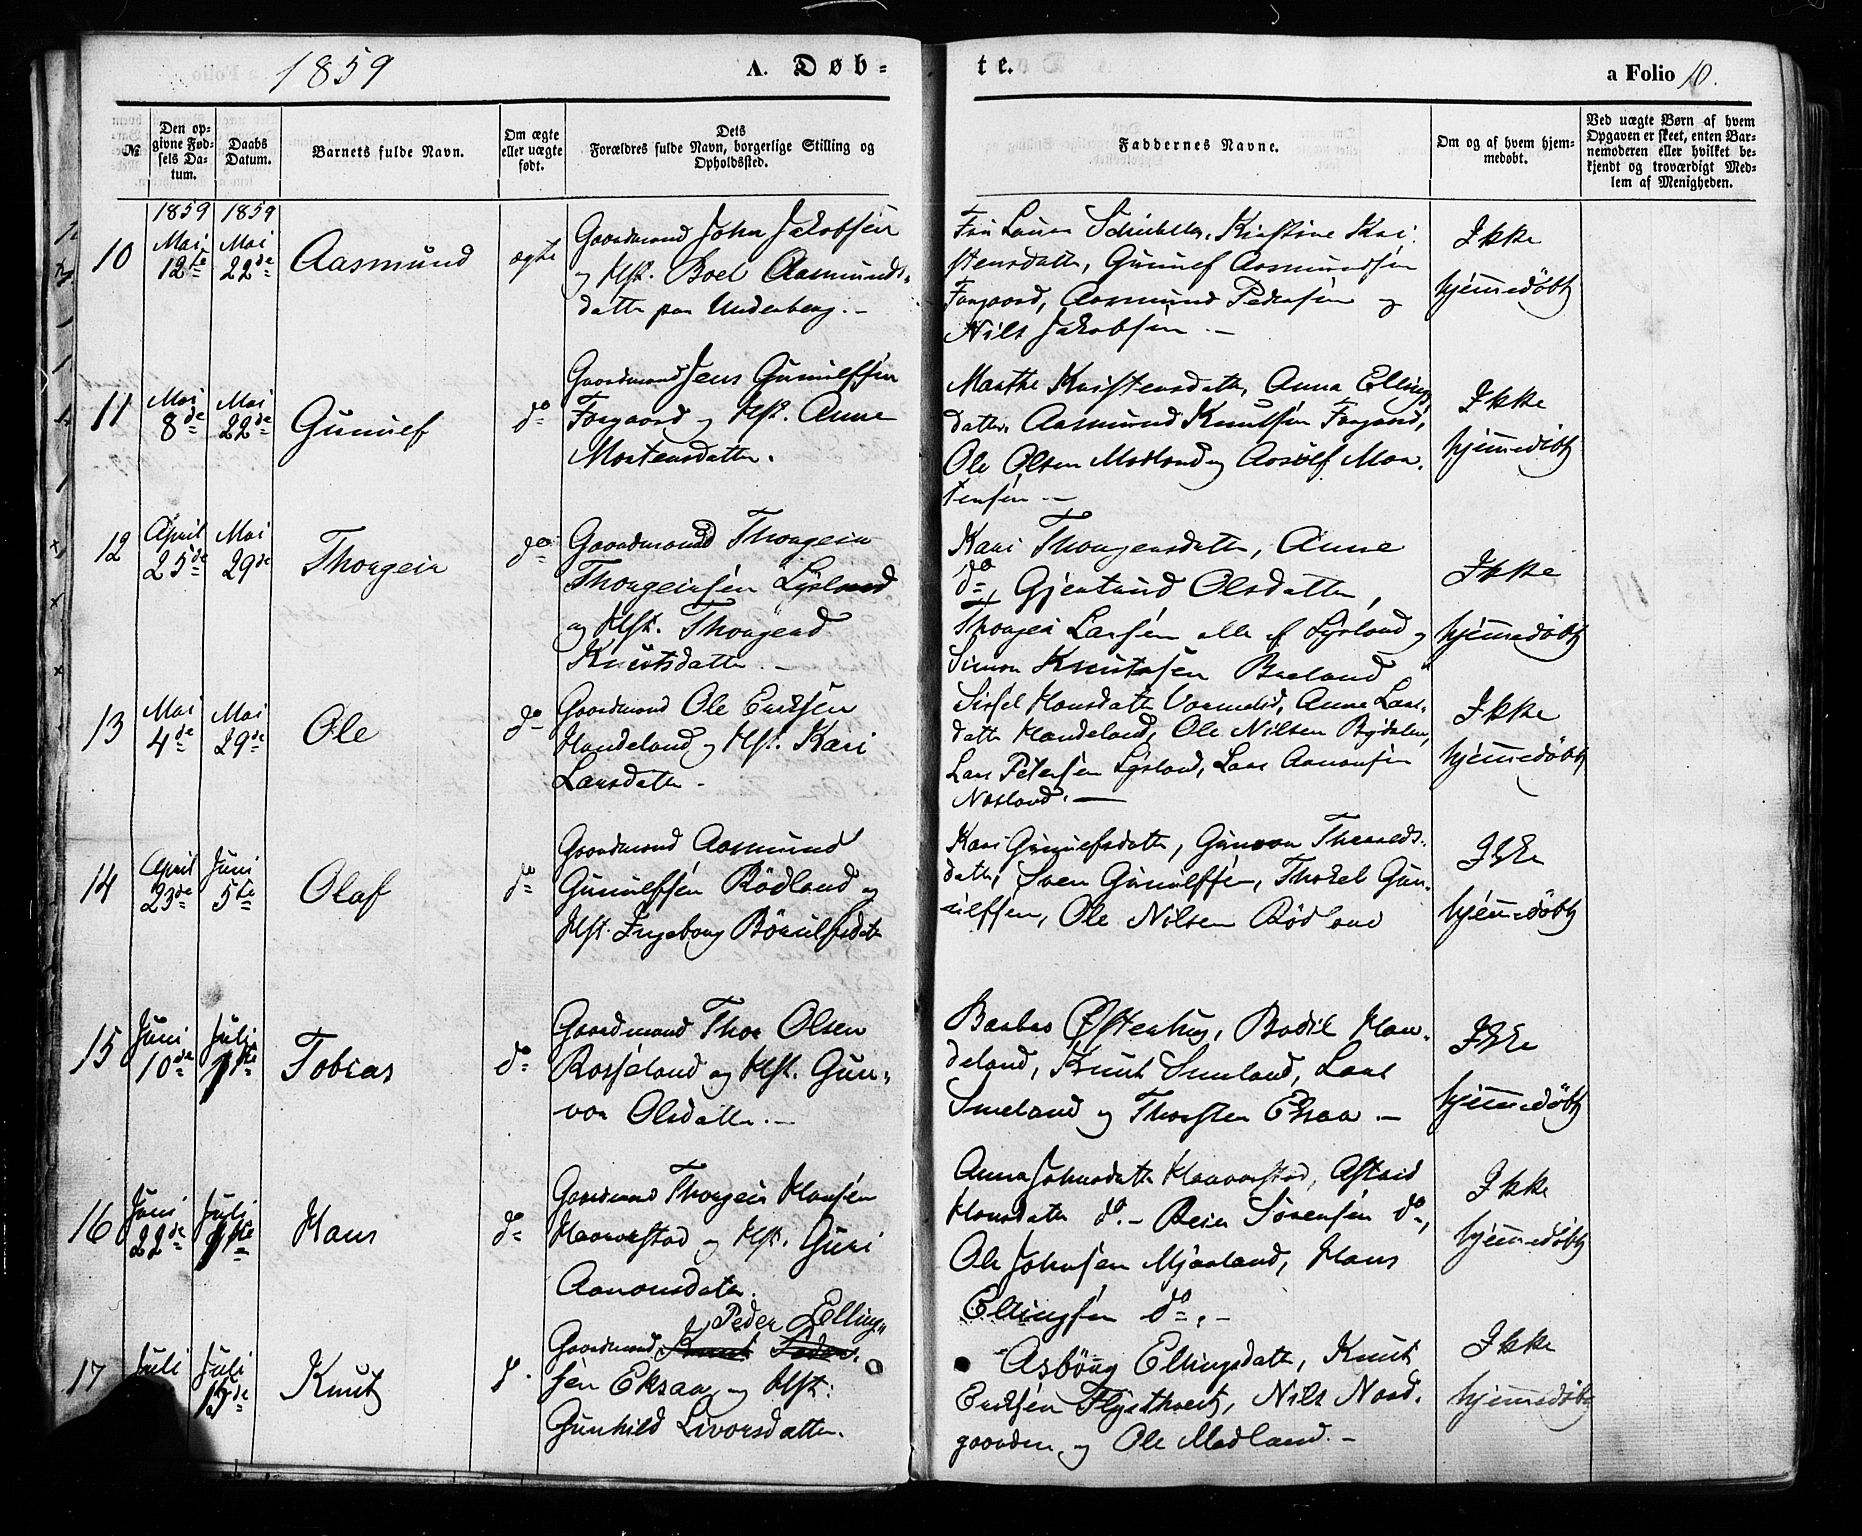 1859
A. Døb-
te.
a Folio 10.
№
Den op-
givne Fød-
sels Da-
tum.
Daabs
Datum.
Barnets fulde Navn.
Om ægte
eller uægte
født.
Dets
Forældres fulde Navn, borgerlige Stilling og
Opholdssted.
Faddernes Navne.
Om og af hvem hjem-
medøbt.
Ved uægte Børn af hvem
Opgaven er skeet, enten Bar-
nemoderen eller hvilket be-
kjendt og troværdigt Med-
lem af Menigheden.
1859 1859
10 Mai 12te Mai 22de Aasmund ægte
Gaardmand John Jakobsen
og Hst. Boel Aasmunds-
datter paa Underberg. –
Kirstine Kri-
stensdatter, Gunulf Aasmundsen
Fargaard, Aasmund Pedersen og
Nils Jakobsen. –
Ikke
hjemmedöbt
11 Mai 8de Mai 22de Gunulf do
Gaardmand Jens Gunulfsen
Fargaard og Hst. Anne
Mortensdatter.
Marthe Kristensdatter, Anna Ellings
datter, Aasmund Knutsen Fargaard,
Ole Olsen Madland og Aasulf Mor-
tensen –
Ikke
hjemmedöbt
12 April 25de Mai 29de Thorgeir do
Gaardmand Thorgeir
Thorgeirsen Lysland
og Hst. Thorgerd
Knutsdatter. –
Kari Thorgersdatter, Anne
do, Gjertrud Olsdatter,
Thorgei Larsen alle af Lysland og
Simon Knutsen Breland
Ikke
hjemmedöbt
13 Mai 4de Mai 29de Ole do
Gaardmand Ole Eriksen
Handeland og Hst. Kari
Larsdatter –
Sissel Hansdatter Vormelid, Anne Lars-
datter Handeland, Ole Nilsen Bydalen,
Lars Petersen Lysland, Lars Aanonsen
Nasland. –
Ikke
hjemmedöbt
14 April 23de Juni 5te Olaf do
Gaardmand Aasmund
Gunulfsen Rödland og
Hst. Ingeborg Börulfsdatr
Kari Gunulfsdatter, Gunvor Tharalds-
datter, Sven Gunulfsen, Thorkel Gun-
ulfsen, Ole Nilsen Rödland
Ikke
hjemmedöbt
15 Juni 10de Juli Tobias do
Gaardmand Thor Olsen
Rosseland og Hst. Gun-
vor Olsdatter. –
Barbro Østerhus, Bodil Han-
deland, Knut Smeland, Lars
Smeland og Thorsten Eksaa –
Ikke
hjemmedöbt
16 Juni 22de Juli Hans do
Gaardmand Thorgeir Hansen
Haaverstad og Hst. Guri
Aanonsdatter.
Anna Johnsdatter Haaverstad, Astrid
Hansdatter do. – Reier Sörensen do,
Ole Johnsen Mjaaland, Hans
Ellingsen do. –
Ikke
hjemmedöbt
17 Juli Juli Knut d.
Peder Elling-
Gaardmand Knut Peder-
sen Eksaa og Hst:
Gunhild Livorsdatter.
Asbörg Ellingsdatter, Knut
Eriksen Flysthveit, Nils Nord-
gaarden, og Ole Madland. –
Ikke
hjemmedöbt